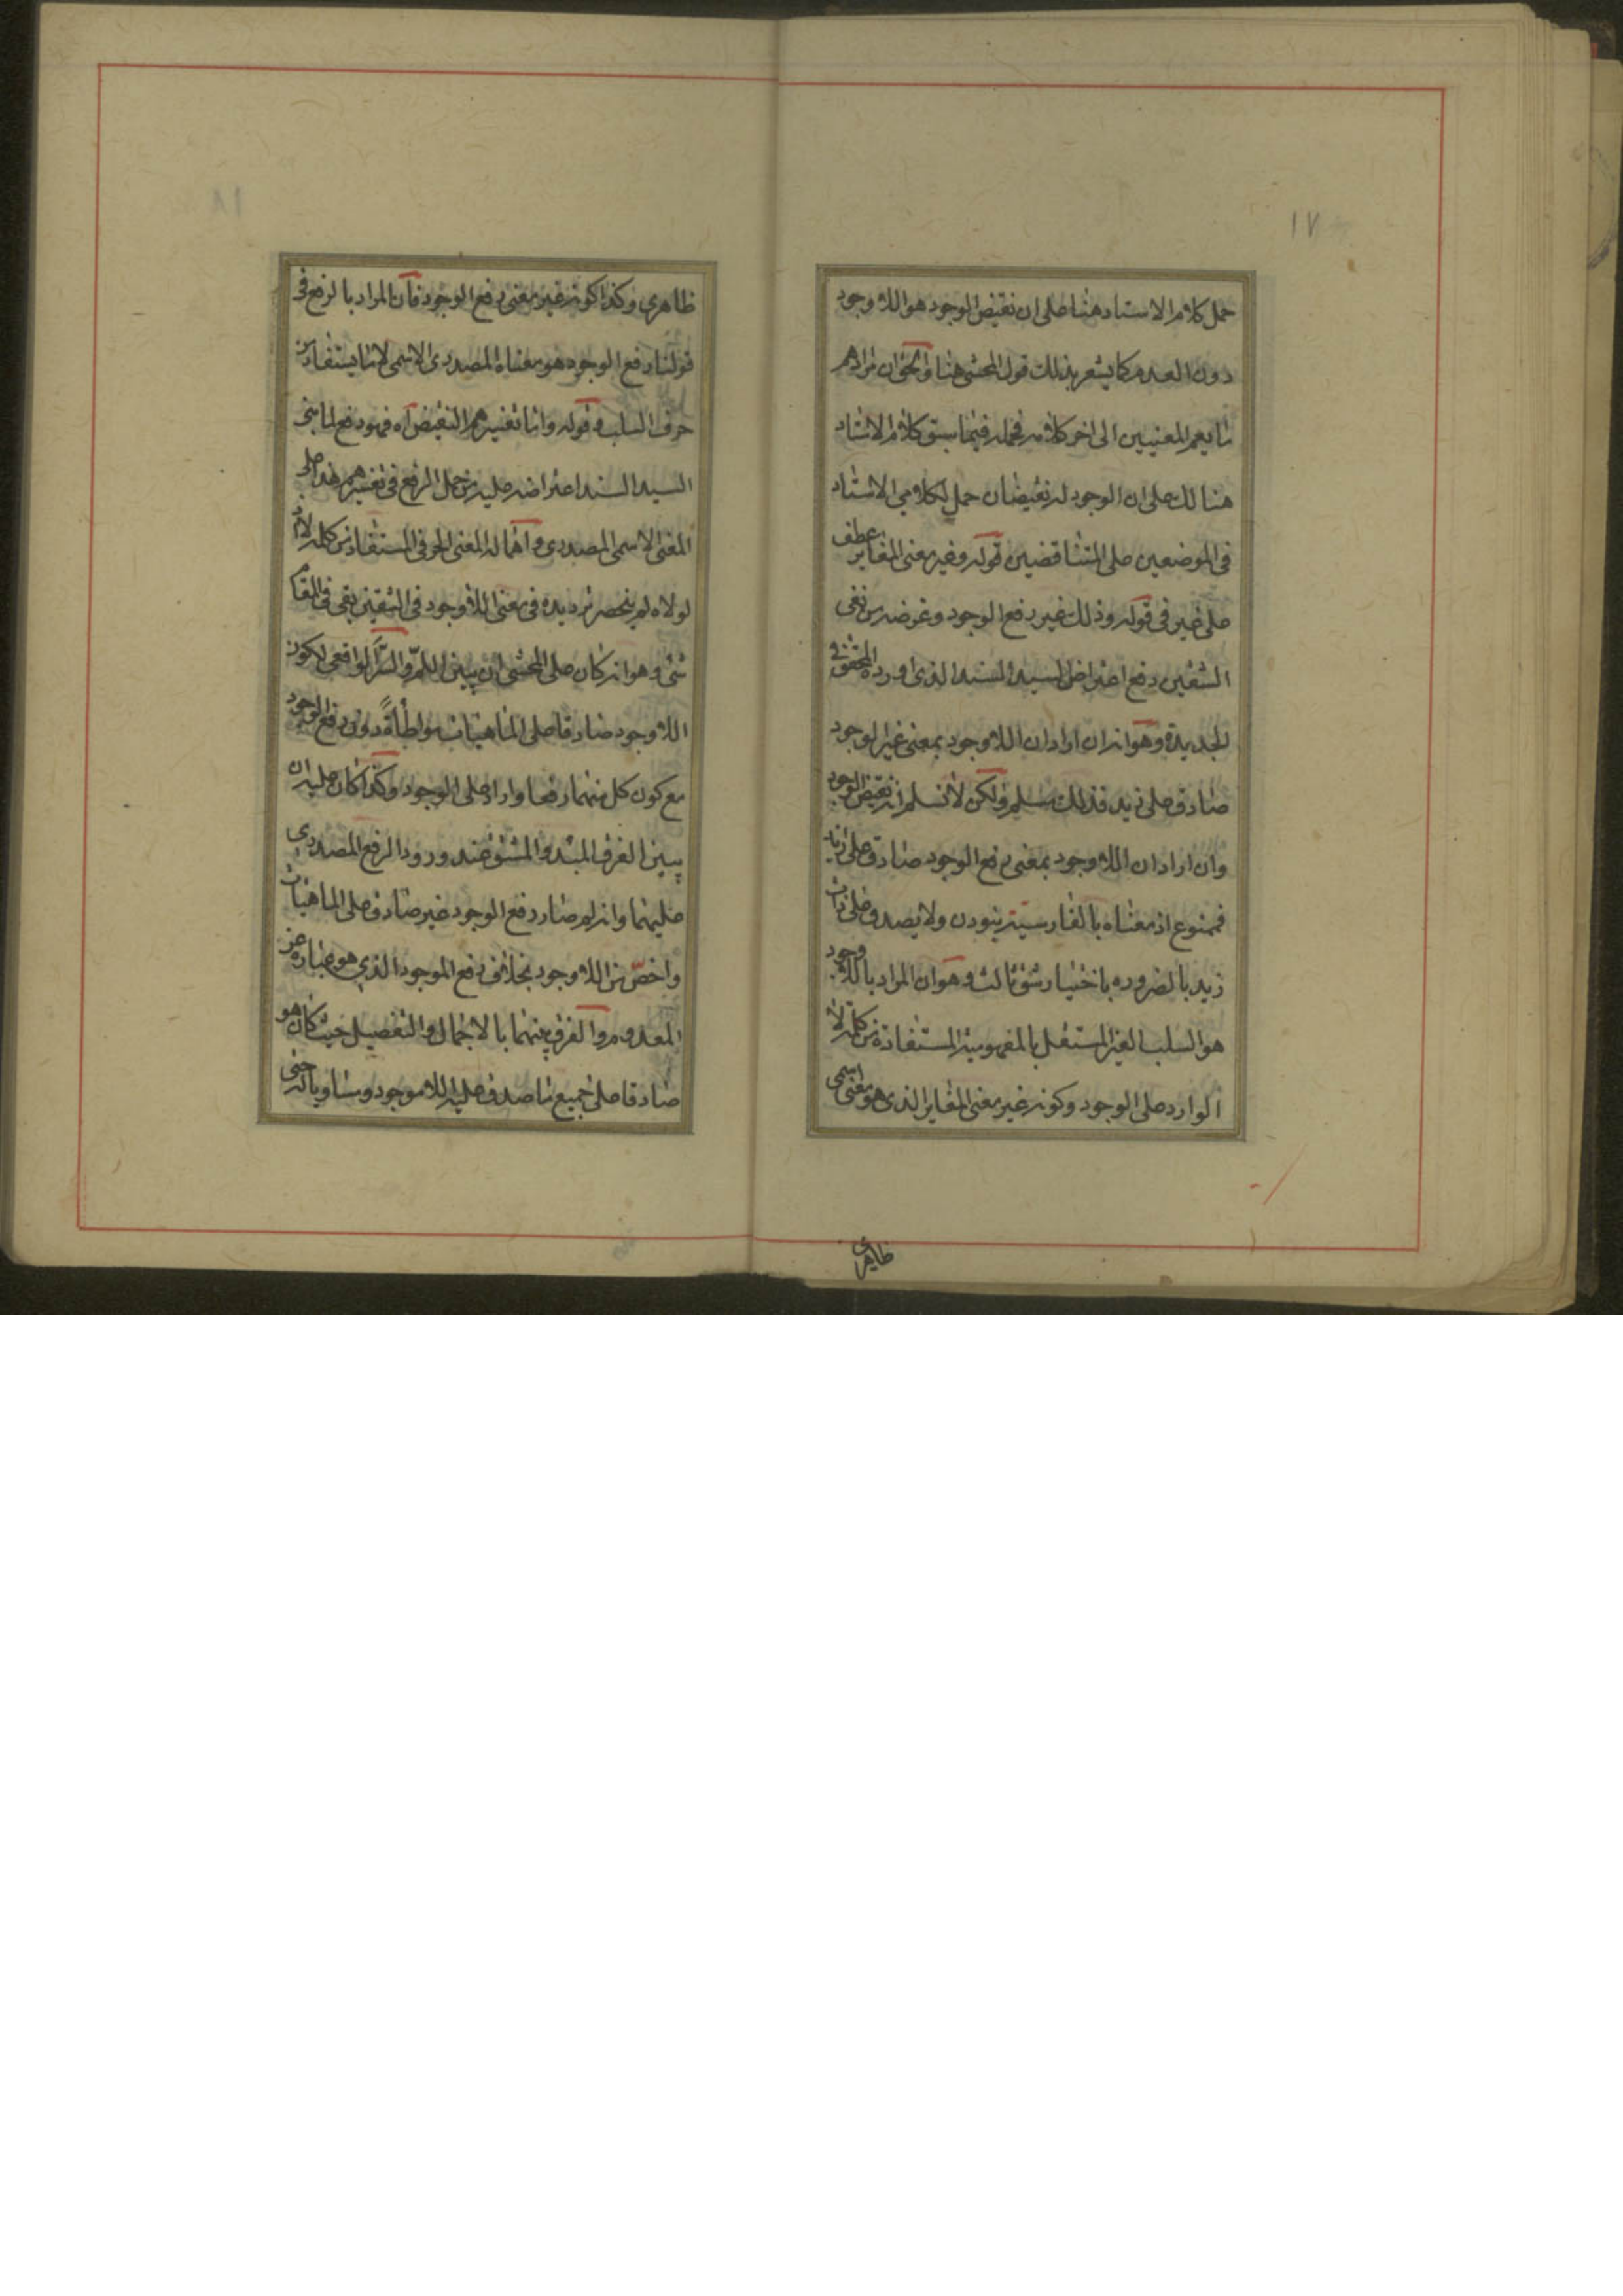 ١٧
حمل كلام الاستاد هنا على ان نقيض الوجود هو اللا وجود
دون العدم كما يشعر بذلك قول المحشى هنا والحق ان مرادهم
ما يعم المعنيين الى اخر كلامه فحمله فيما سبق كلام الاستاد
هنالك على ان الوجود له نقيضان حمل لكلامى الاستاد
فى الموضعين على المتناقضين قوله وغير معنى المغاير عطف
على غير فى قوله وذلك غير رفع الوجود وغرضه من نفى
الشقين دفع اعتراض السيد السند الذى اورده المحقق فى
الجديدة وهو انه ان اراد ان اللا وجود بمعنى غير الوجود
صادق على زيد فذلك مسلم ولكن لا نسلم انه نقيض الوجود
وان اراد ان اللا وجود بمعنى رفع الوجود صادق على زيد
فممنوع اذ معناه بالفارسية نبودن ولا يصدق على ذات
زيد بالضروره باختيار شق ثالث وهو ان المراد باللا وجود
هو السلب الغير المستقل بالمفهومية المستفادة من كلمة لا
الوارد على الوجود وكونه غير معنى المغاير الذى هو معنى اسمى
ظاهرى
١٨
ظاهرى وكذا كونه غير معنى رفع الوجود فان المراد بالرفع فى
قولنا رفع الوجود هو معناه المصدرى الاسمى لا ما يستفاد من
حرف السلب قوله واما تفسيرهم النقيض اه فهو دفع لما بنى
السيد السند اعتراضه عليه من حمل الرفع فى تفسيرهم هذا على
المعنى الاسمى المصدرى واهماله المعنى الحرفى المستفاد من كلمة لا اذ
لولاه لم ينحصر ترديده فى معنى اللا وجود فى الشقين بقى فى المقام
شئ وهو انه كان على المحشى ان يبين اللم والسر الواقعى لكون
اللا وجود صادقا على الماهيات مواطأة دون رفع الوجود
مع كون كل منهما رفعا واردا على الوجود وكذا كان عليه ان
يبين الفرق المبدء والمشتق عند ورود الرفع المصدرى
عليهما وانه لم صار رفع الوجود غير صادق على الماهيات
واخص من اللا وجود بخلاف رفع الموجود الذى هو عبارة عن
المعدوم والفرق بينهما بالاجمال والتفصيل حيث كان هو
صادقا على جميع ما صدق عليه اللا موجود ومساويا له حتى